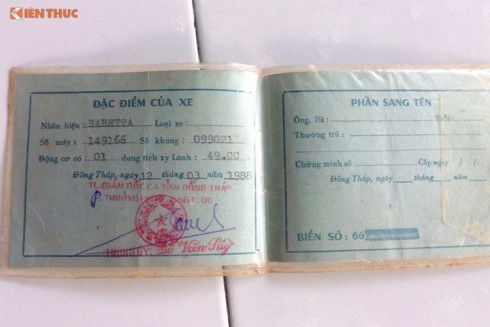 KIẾN THỨC
ĐẶC ĐIỂM CỦA XE
Nhãn hiệu: BABETTA Loại xe:
Số máy: 149166 Số khung: 099021
Động cơ có 01 dung tích xy Lanh: 49.00
Đồng Tháp, ngày 12 tháng 03 năm 1988
TL. GIÁM ĐỐC CA TỈNH ĐỒNG THÁP
Văn Súy
PHẦN SANG TÊN
Ông, Bà:
Thường trú:
Chứng minh số Cấp ngày / /
Đồng Tháp, ngày tháng năm
BIỂN SỐ: 66